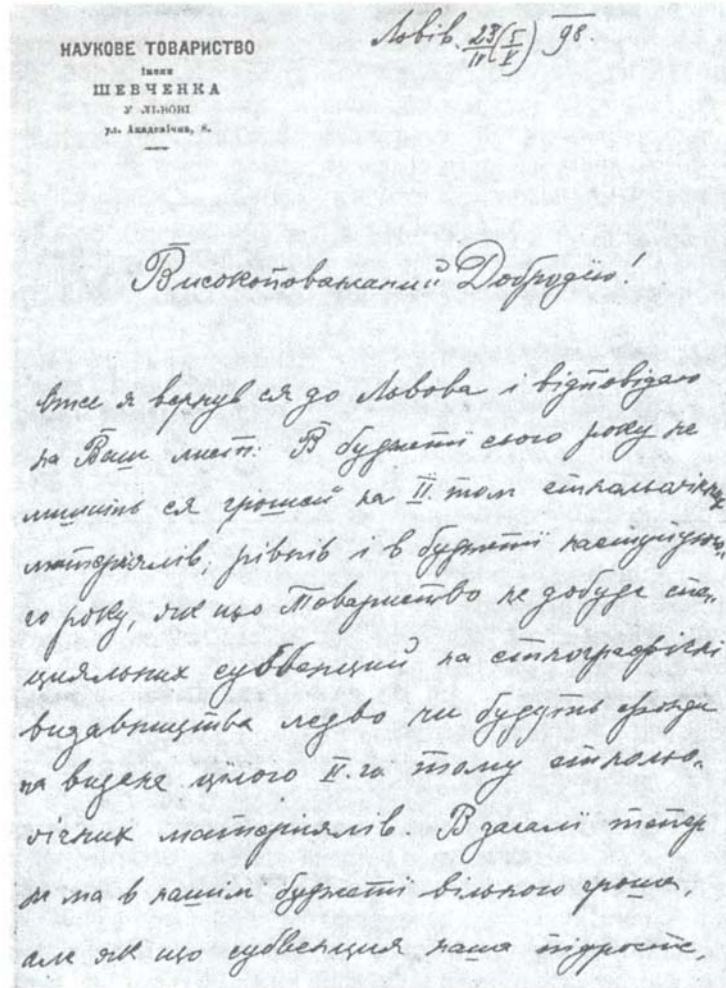 НАУКОВЕ ТОВАРИСТВО
імени
ШЕВЧЕНКА
У ЛЬВОВІ
ул. Академічна, 8.
Львів 23/IV (5/V) 98
Високоповажаний Добродїю!
Вже я вернув ся до Львова і відповідаю
на Ваш лист. В буджетї сього року не
лишить ся грошей на II. том етнольоґічних
материялів, рівнїв і в буджетї наступуючо-
го року, як що Товариство не добуде спе-
цияльних субвенций на етноґрафічні
видавництва ледво чи будуть фонди
на виденє цїлого II.го тому етнольо-
ґічних материялів. В загалї тепер
не ма в нашім буджетї вільного гроша,
але як що субвенция наша підросте,